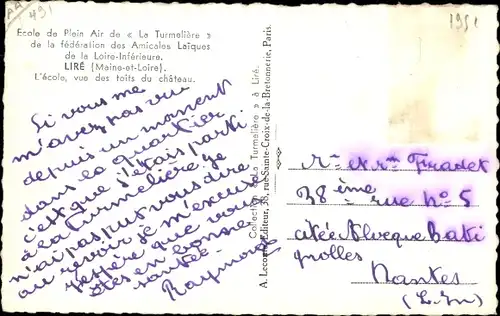 AA
491
1951
Ecole de Plein Air de « La Turmelière »
de la fédération des Amicales Laïques
de la Loire-Inférieure.
LIRÉ (Maine-et-Loire).
L'école, vue des toits du château.
Si vous me
m'avez pas vu
depuis un moment
dans le quartier
c'est que j'étais parti
à la Turmelière. Je
n'ai pas put vous dire
au revoir je m'excuse
j'espère que vous
êtes en bonne
santée.
Raymond
Collection de la « Turmelière » à Liré.
A. Lecomte, Editeur, 38, rue Sainte-Croix-de-la-Bretonnerie, Paris.
Mr et Mme Fruadet
38ème rue n° 5
citée Alveque Batignolles
Nantes
(L. Inf)